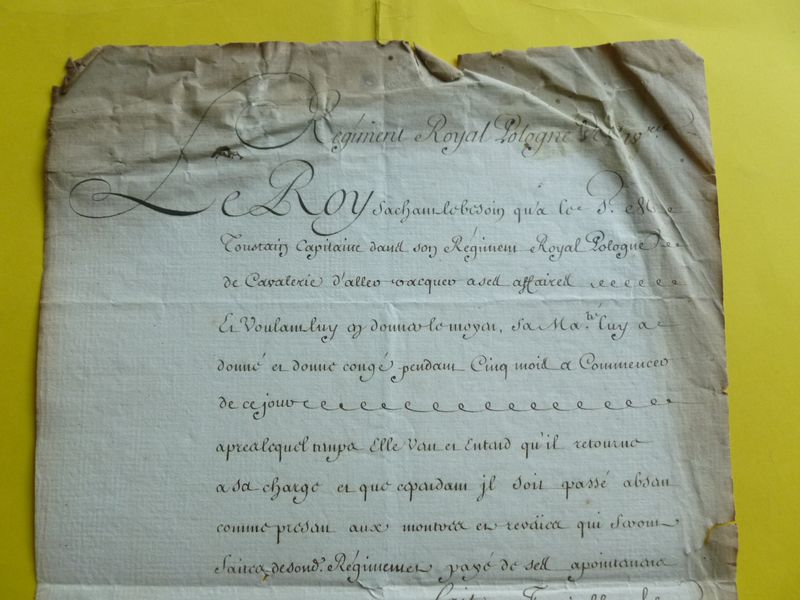 Régiment Royal Pologne
Le Roy sachant le besoin qu'a le Sr. de
Toustain Capitaine dans son Régiment Royal Pologne
de Cavalerie d'aller vacquer a ses affaires
Et Voulant luy en donner le moyen, sa Ma.té luy a
donné et donne congé pendant Cinq mois a Commencer
de ce jour
apres lequel temps Elle Veut et Entend qu'il retourne
a sa charge et que cependant il soit passé absent
comme present aux montres et reveües qui seront
faites de sond. Régiment payé de ses apointements